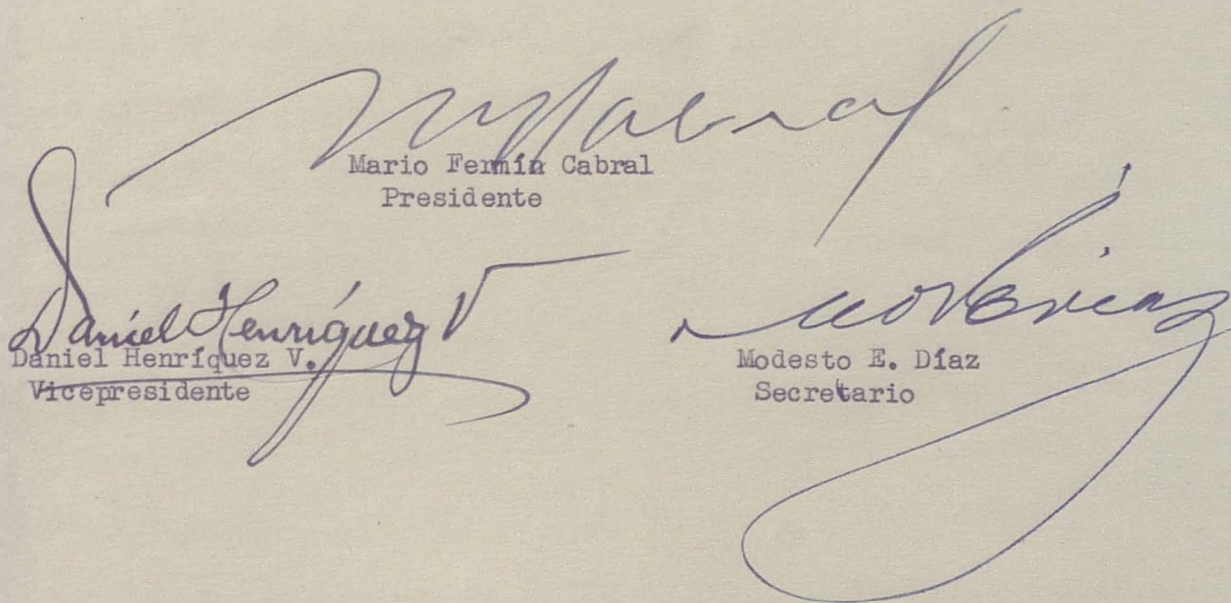 MFCabral
Mario Fermín Cabral
Presidente
Daniel Henríquez V
Daniel Henríquez V.
Vicepresidente
Modesto E. Díaz
Secretario